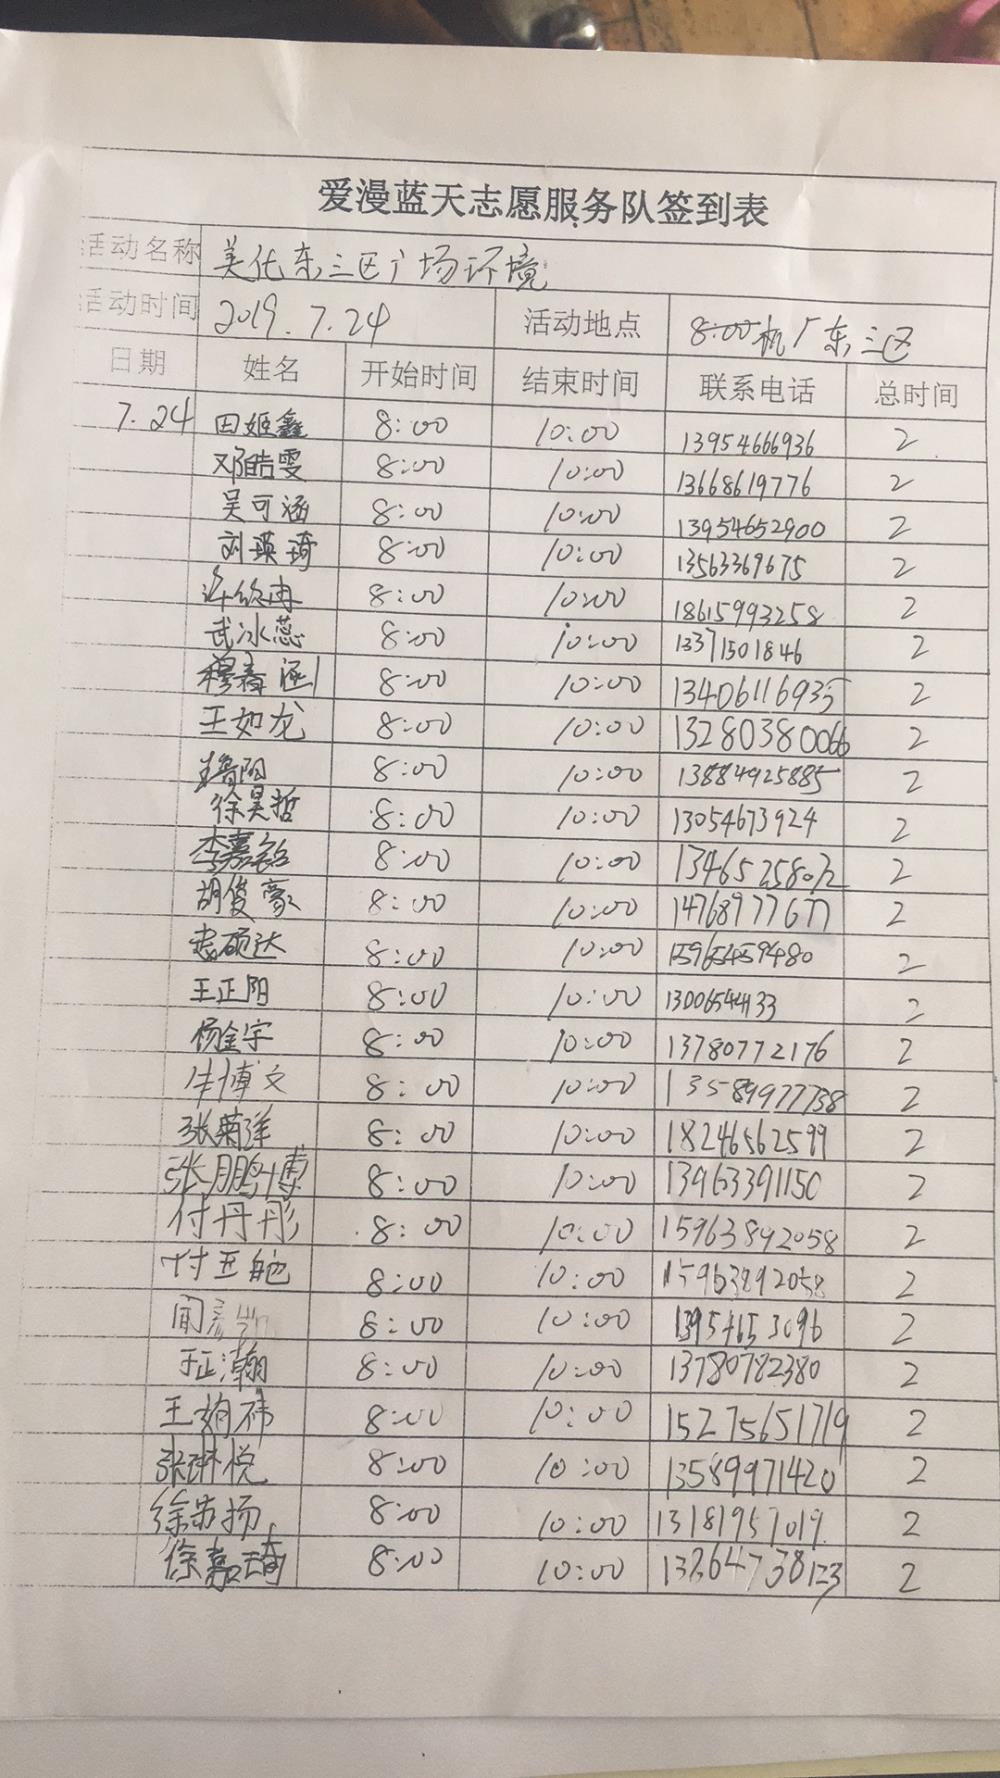 爱漫蓝天志愿服务队签到表
活动名称 美化东三区广场环境
活动时间 2019.7.24 活动地点 8:00机厂东三区
日期 姓名 开始时间 结束时间 联系电话 总时间
7.24 田姬鑫 8:00 10:00 13954666936 2
邓皓雯 8:00 10:00 13668619776 2
吴可涵 8:00 10:00 13954652900 2
刘瑛琦 8:00 10:00 13563369675 2
许欣冉 8:00 10:00 18615993258 2
武冰蕊 8:00 10:00 13371501846 2
穆春涵 8:00 10:00 13406116935 2
王如龙 8:00 10:00 13280380066 2
8:00 10:00 13884925885 2
徐昊哲 8:00 10:00 13054673924 2
李嘉铭 8:00 10:00 2
胡俊豪 8:00 10:00 14768977677 2
硕达 8:00 10:00 15965459480 2
王正阳 8:00 10:00 13006544133 2
杨金宇 8:00 10:00 13780772176 2
牛博文 8:00 10:00 13589977738 2
张菊洋 8:00 10:00 18246562599 2
张鹏博 8:00 10:00 13963391150 2
付丹彤 8:00 10:00 15963892058 2
付玉舵 8:00 10:00 15963892058 2
闻 8:00 10:00 13954653096 2
于正瀚 8:00 10:00 13780782380 2
王姌祎 8:00 10:00 15275651719 2
张琳悦 8:00 10:00 13589971420 2
徐苏扬 8:00 10:00 13181957019 2
徐嘉琦 8:00 10:00 2